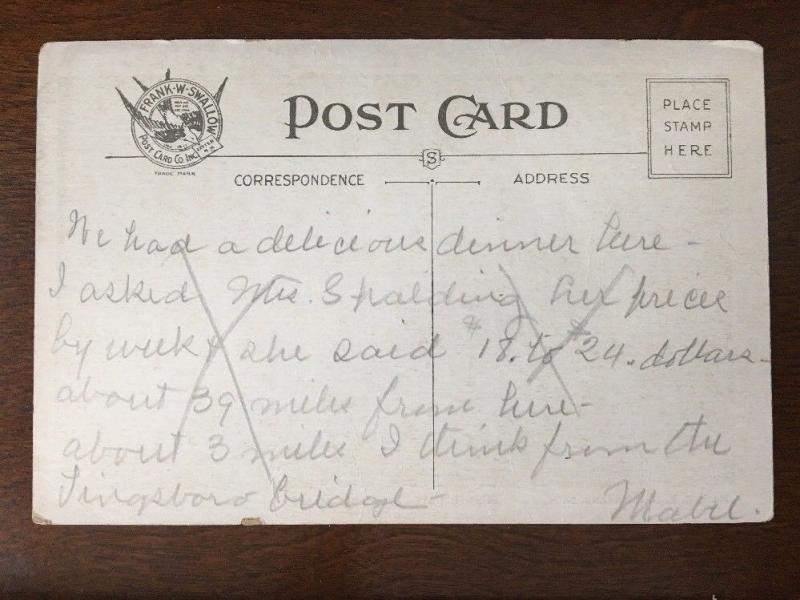 FRANK·W·SWALLOW
POST CARD CO INC
TRADE MARK
POST CARD
PLACE
STAMP
HERE
S
CORRESPONDENCE
ADDRESS
We had a delicious dinner here -
I asked Mrs. Spalding her prices
by week & she said $18. to $24. dollars -
about 39 miles from here -
about 3 miles I think from the
Tingsboro bridge -
Mabel.